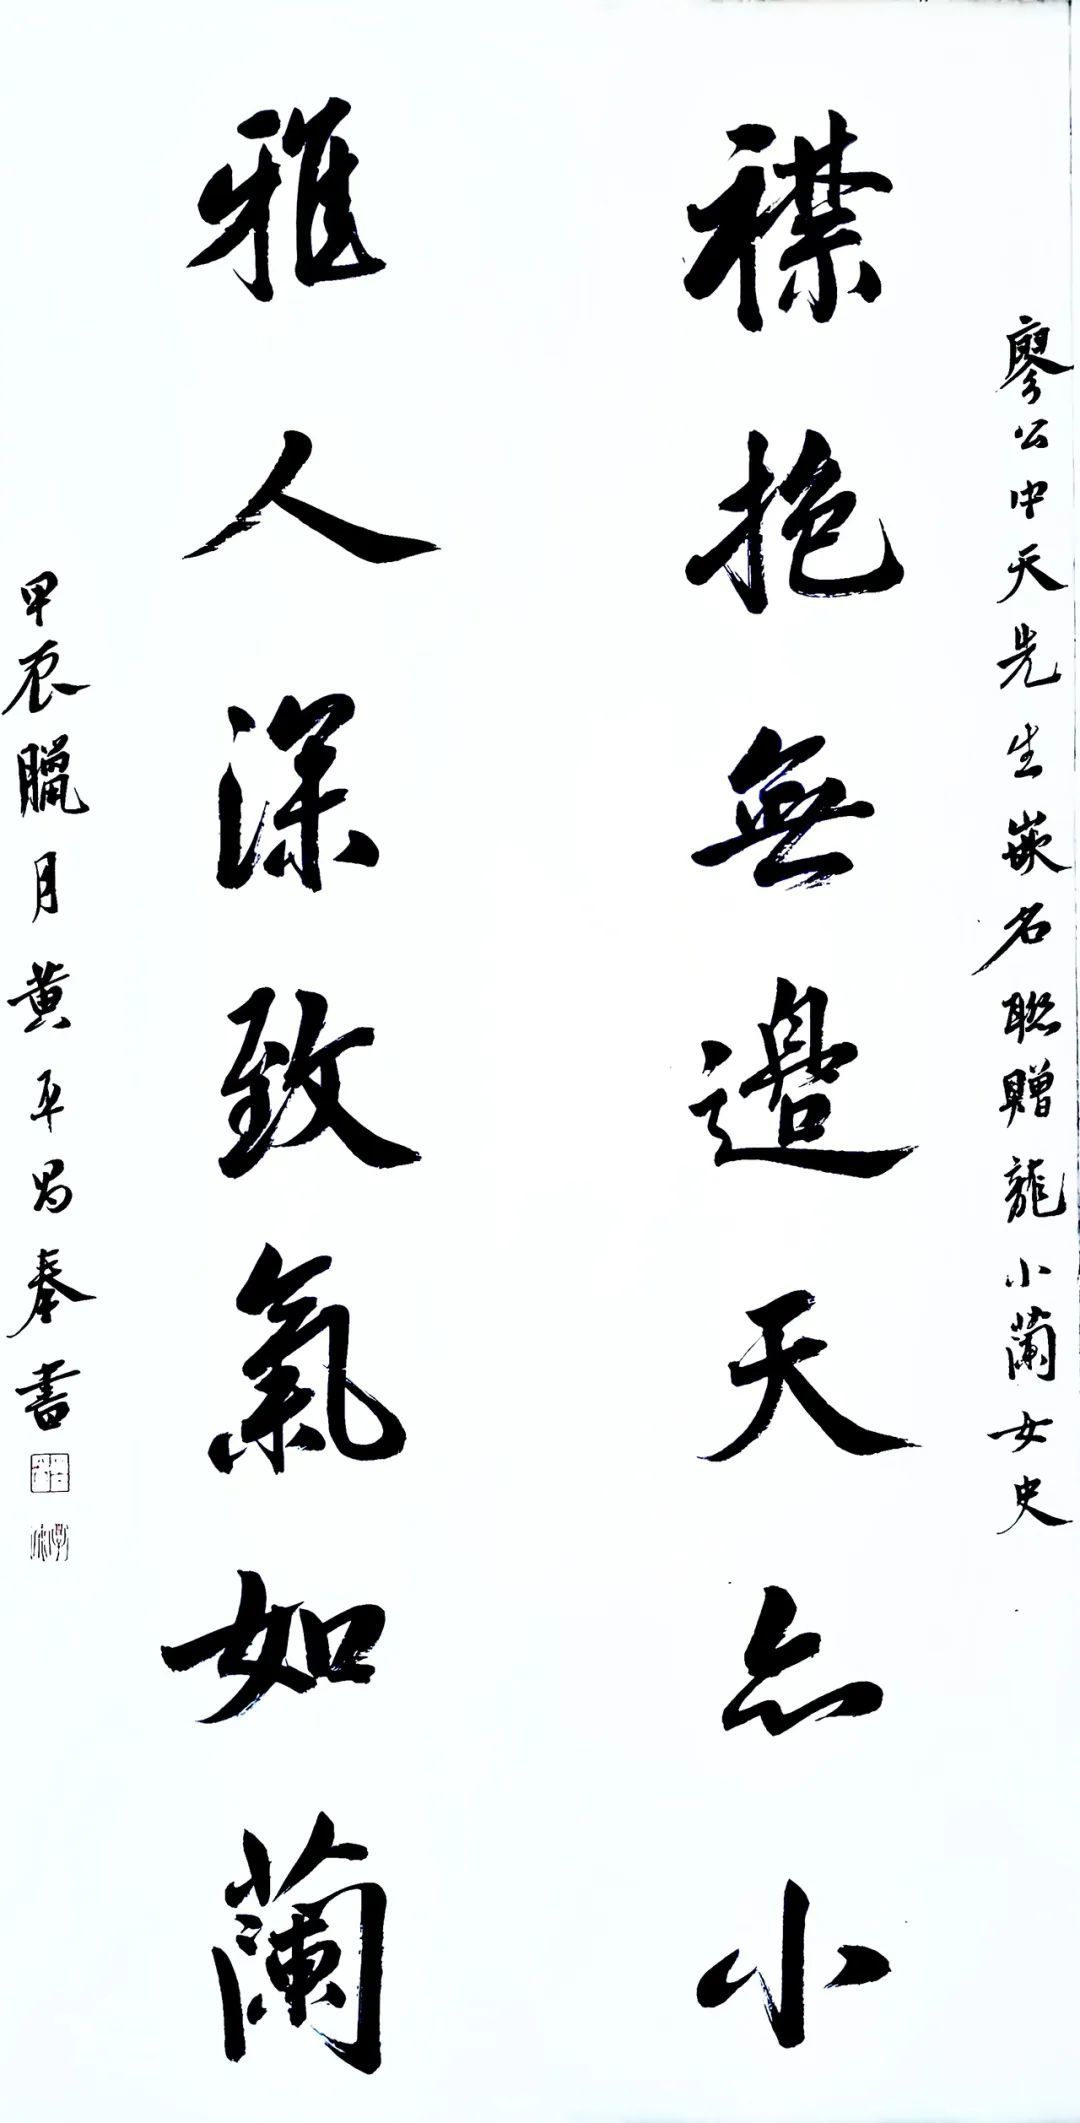 廖公中天先生嵌名聯贈龍小蘭女史
襟抱無邊天亦小
雅人深致氣如蘭
甲辰臘月黄平昌奉書